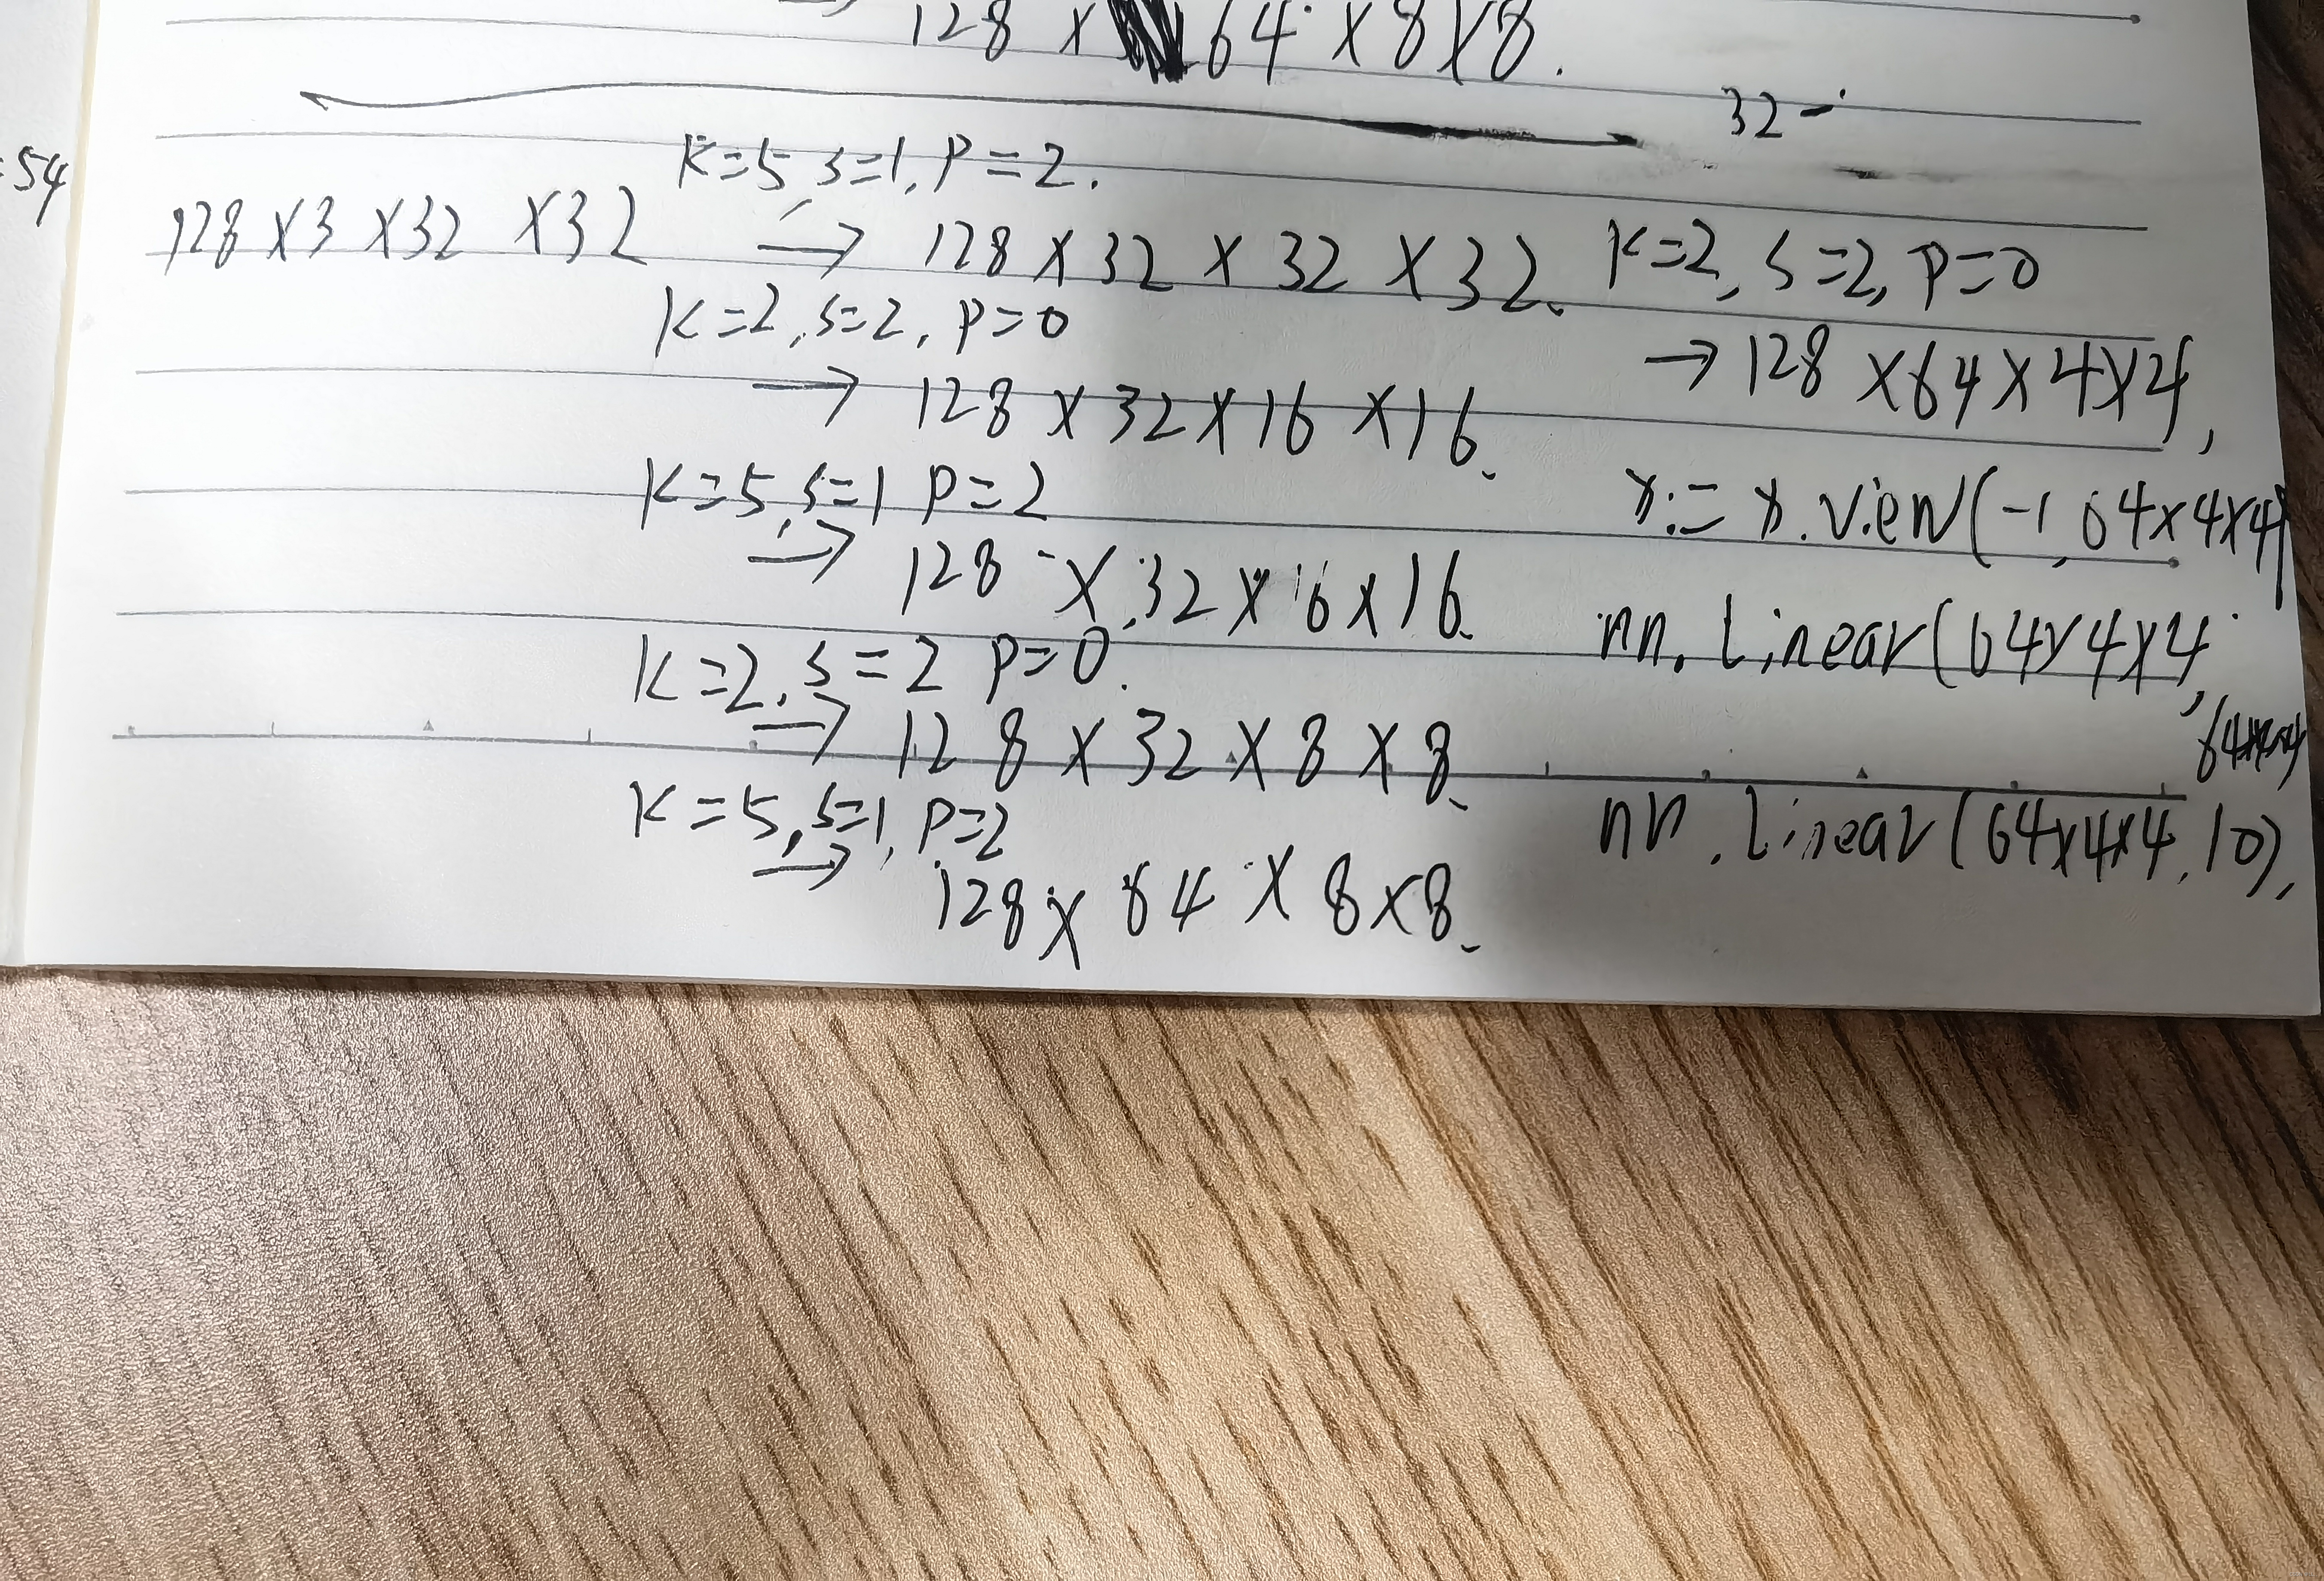 128 × 64 × 8 × 8.
32 -
=54
K=5 s=1, P=2.
128 × 3 × 32 × 32 → 128 × 32 × 32 × 32.
K=2, s=2, P=0
→ 128 × 32 × 16 × 16.
K=5, s=1 P=2
→ 128 × 32 × 16 × 16.
K=2, s=2 P=0.
→ 128 × 32 × 8 × 8.
K=5, s=1, P=2
→ 128 × 64 × 8 × 8.
K=2, s=2, P=0
→ 128 × 64 × 4 × 4,
x = x.view(-1, 64×4×4)
nn.Linear(64×4×4,
nn.Linear(64×4×4, 10),